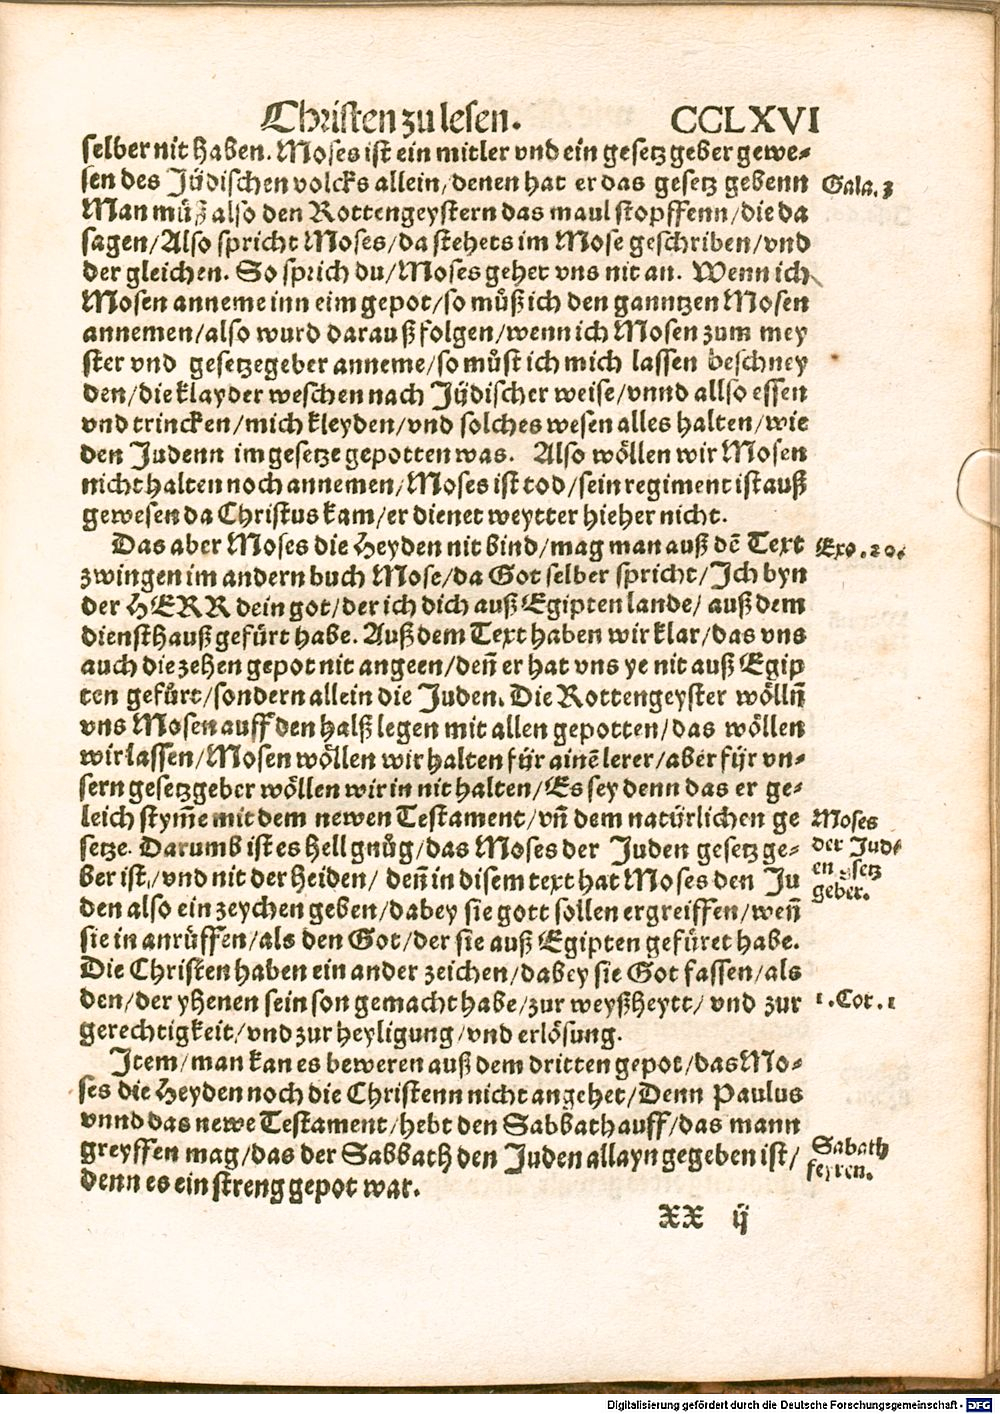 Christen zu lesen. CCLXVI
selber nit haben. Moses ist ein mitler vnd ein gesetz geber gewe⸗
sen des Jüdischen volcks allein/denen hat er das gesetz gebenn
Gala. 3
Man müß also den Rottengeystern das maul stopffenn/die da
sagen/Also spricht Moses/da stehets im Mose geschriben/vnd
der gleichen. So sprich du/Moses gehet vns nit an. Wenn ich
Mosen anneme inn eim gepot/so můß ich den ganntzen Mosen
annemen/also wurd darauß folgen/wenn ich Mosen zum mey
ster vnd gesetzegeber anneme/so můst ich mich lassen beschney
den/die klayder weschen nach Jüdischer weise/vnnd allso essen
vnd trincken/mich kleyden/vnd solches wesen alles halten/wie
den Judenn im gesetze gepotten was. Also wöllen wir Mosen
nicht halten noch annemen/Moses ist tod/sein regiment ist auß
gewesen da Christus kam/er dienet weytter hieher nicht.
Das aber Moses die Heyden nit bind/mag man auß dẽ Text
Exo. 20.
zwingen im andern buch Mose/da Got selber spricht/Ich byn
der HERR dein got/der ich dich auß Egipten lande/ auß dem
diensthauß gefürt habe. Auß dem Text haben wir klar/das vns
auch die zehen gepot nit angeen/deñ er hat vns ye nit auß Egip
ten gefürt/sondern allein die Juden. Die Rottengeyster wöllñ
vns Mosen auff den halß legen mit allen gepotten/das wöllen
wir lassen/Mosen wöllen wir halten für ainẽ lerer/aber für vn⸗
sern gesetzgeber wöllen wir in nit halten/Es sey denn das er ge⸗
leich stym̃e mit dem newen Testament/vñ dem natürlichen ge
setze. Darumb ist es hell gnůg/das Moses der Juden gesetz ge⸗
ber ist/vnd nit der Heiden/ deñ in disem text hat Moses den Ju
Moses
der Jud⸗
en gsetz
geber.
den also ein zeychen geben/dabey sie gott sollen ergreiffen/weñ
sie in anrüffen/als den Got/der sie auß Egipten gefüret habe.
Die Christen haben ein ander zeichen/dabey sie Got fassen/als
den/der yhenen sein son gemacht habe/zur weyßheytt/ vnd zur
1. Cor. 1
gerechtigkeit/vnd zur heyligung/vnd erlösung.
Item/man kan es beweren auß dem dritten gepot/das Mo⸗
ses die Heyden noch die Christenn nicht angehet/Denn Paulus
vnnd das newe Testament/hebt den Sabbath auff/das mann
greyffen mag/das der Sabbath den Juden allayn gegeben ist/
Sabath
feyren.
denn es ein streng gepot war.
XX ij
Digitalisierung gefördert durch die Deutsche Forschungsgemeinschaft - DFG